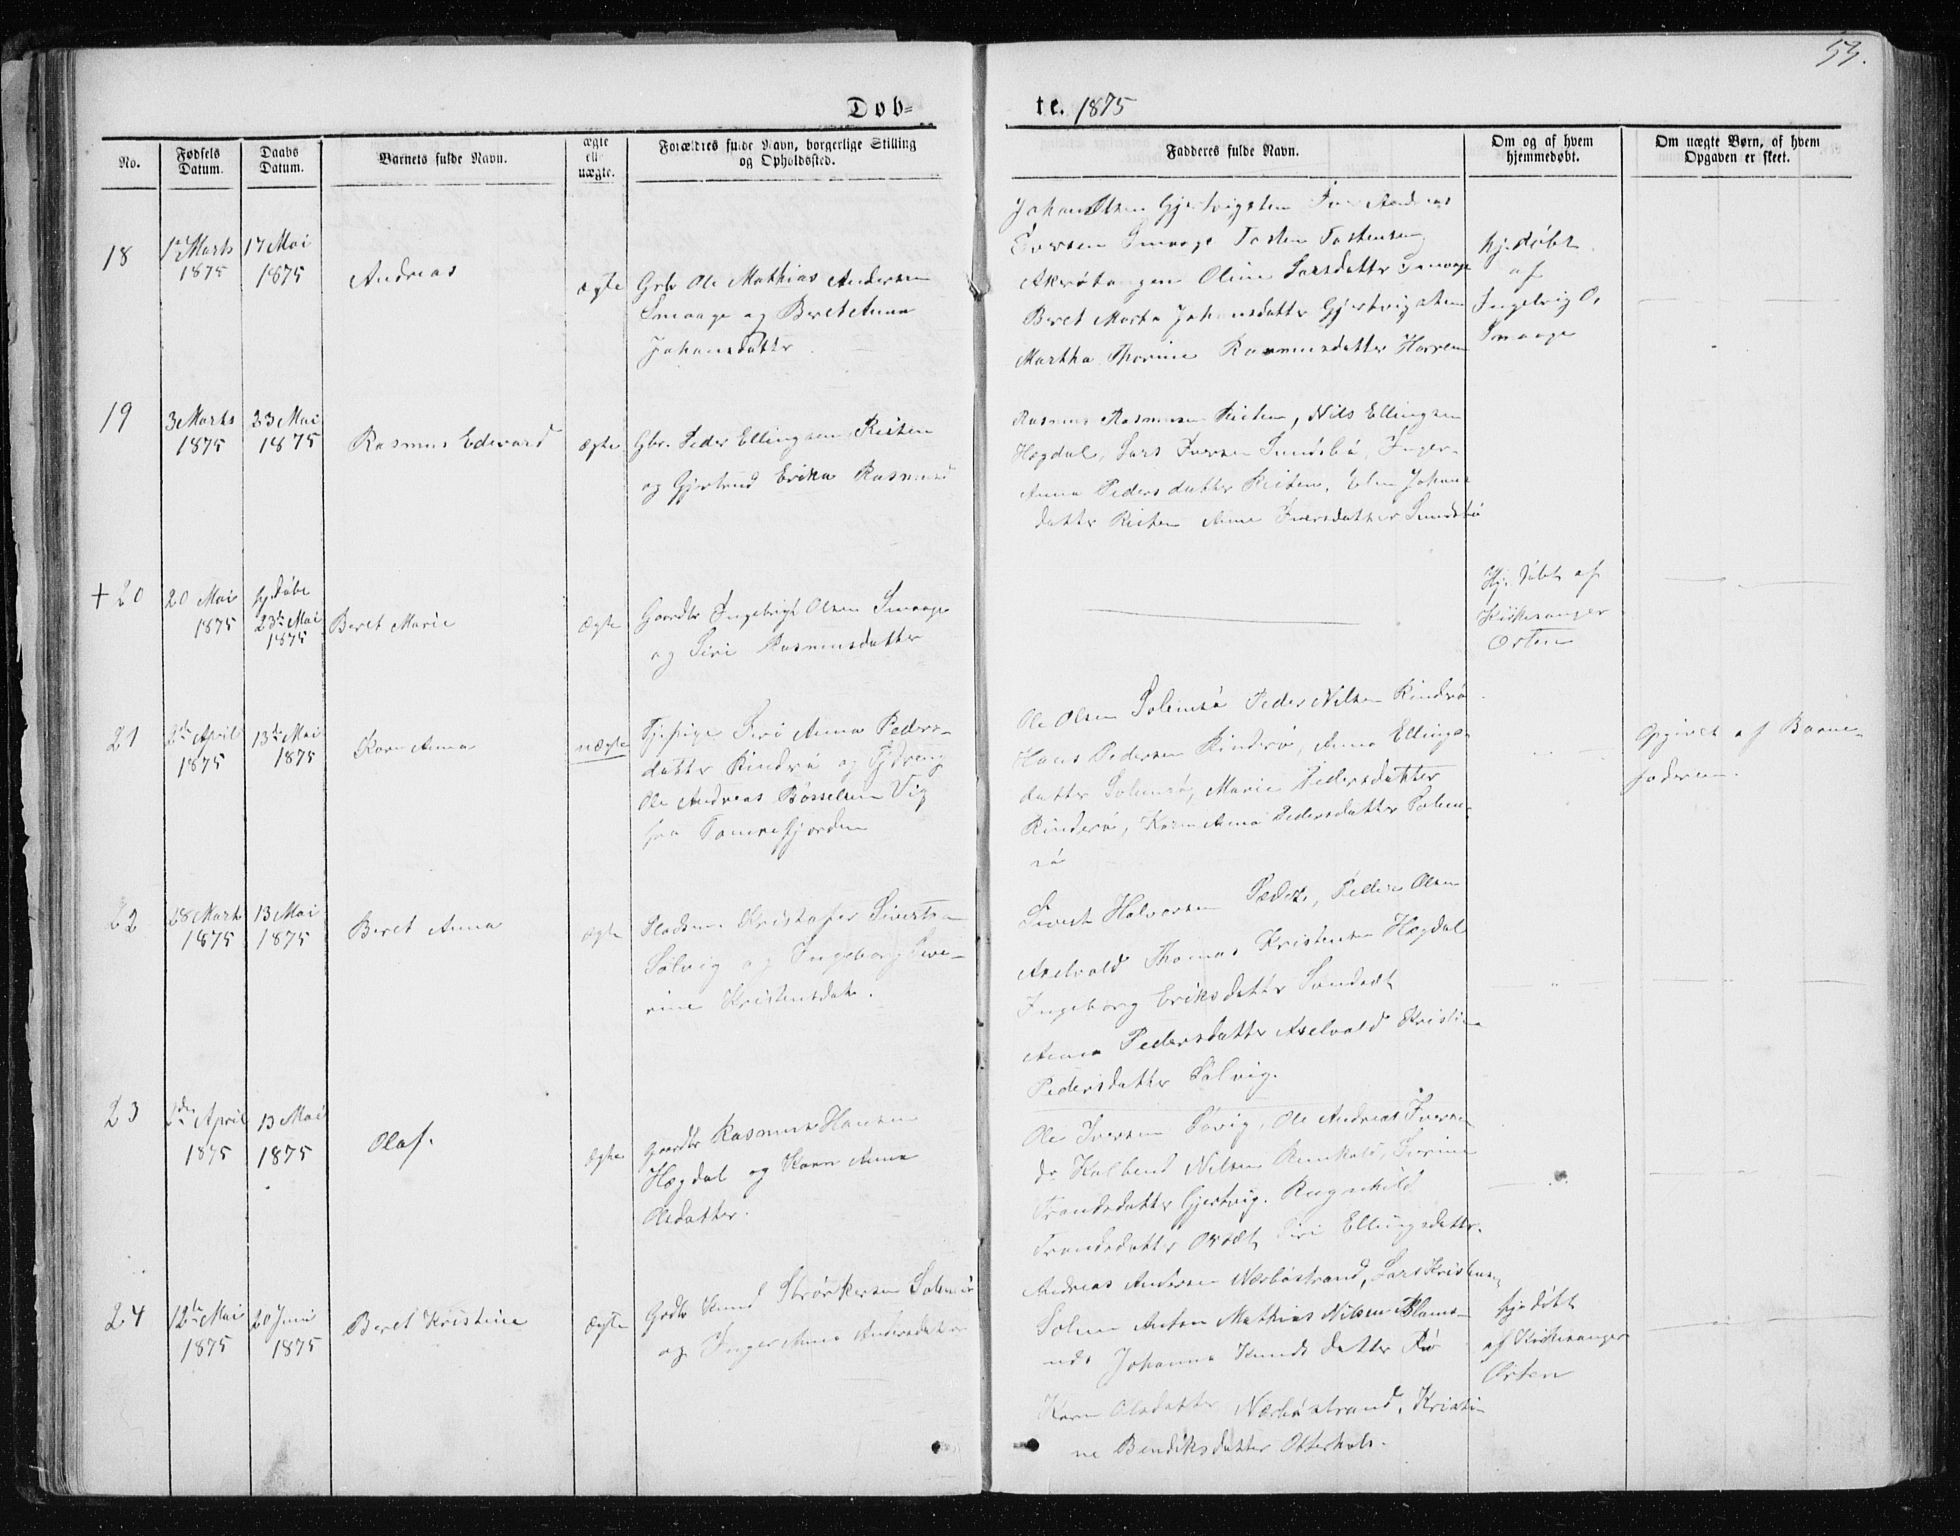 53.
Døb=
te. 1875
No.
Fødsels Datum.
Daabs Datum.
Barnets fulde Navn.
ægte ell. uægte.
Forældres fulde Navn, borgerlige Stilling og Opholdssted.
Fadderes fulde Navn.
Om og af hvem hjemmedøbt.
Om uægte Børn, af hvem Opgaven er skeet.
18
1ste Marts 1875
17 Mai 1875
Andreas
ægte
Gbr Ole Mathias Andersen
Smaage og Beret Anna
Johansdatter
Johan Olsen Gjertvigsten Iver Andreas
Iversen Smaage Tosten Tostensen
Akerøtangen Oline Larsdatter Smaage
Beret Marta Johansdatter Gjertvigsten
Martha Thorine Rasmusdatter Harrem
hj.døbt
af
Ingebrig O.
Smaage
19
3 Marts 1875
23 Mai 1875
Rasmus Edevard
ægte
Gbr. Peder Ellingsen Risten
og Gjertrud Erika Rasmusd
Rasmus Rasmusen Risten, Nils Ellingsen
Hægdal, Lars Iversen Sundsbø, Inger-
Anna Pedersdatter Risten, Elen Johans
datter Risten Anne Iversdatter Sundsbø
+ 20
20 Mai 1875
hj.døbt 23de Mai 1875
Beret Marie
ægte
Gaardbr Ingebrigt Olsen Smaage
og Siri Rasmusdatter
Hj.døbt af
Kirkesanger
Orten
21
2de April 1875
13de Mai 1875
Karn Anna
uægte
Tj.pige Siri Anna Peders-
datter Rindrø og Gdreng
Ole Andreas Bøsselsen Vig
fra Tomrefjorden
Ole Olsen Solemsø Peder Nilsen Rindrø
Hans Pedersen Rinderø, Anna Ellings-
datter Solemsø, Marie Pedersdatter
Rinderø, Karn Anna Pedersdatter Solem-
sø
Opgivet af Barne-
faderen.
22
28 Marts 1875
13 Mai 1875
Beret Anna
ægte
Pladsm Kristofer Sivertsen
Sølvig og Ingeborg Seve-
rine Kristensdatr.
Sivert Halvorsen, Peder Olsen
Axelvold Thomas Kristensen Hægdal
Ingeborg Eriksdatter Sandsæt
Anna Pedersdatter Axelvold Kristine
Pedersdatter Sølvig.
23
April 1875
13 Mai 1875
Olaf.
ægte
Gaardbr Rasmus Hansen
Hægdal og Karn Anna
Olsdatter.
Ole Iversen Søvig, Ole Andreas Iversen
do Kolbend Nilsen, Sivrine
Trondsdatter Gjertvig. Ragnhild
Trondsdatter Orsæt Siri Ellingsdatter.
24
12te Mai 1875
20 Juni 1875
Beret Kristine
ægte
Grdbr Knud Størkersen Solemsø
og Inger Anna Andersdatter
Andreas Andersen Nærbøstrand, Lars Kristensen
Solem Anton Mathias Nilsen Mans-
und, Johanna Knudsdatter Rø
Karn Olsdatter Nærbøstrand, Kristi-
ne Bendiksdatter Otterhals.
hjdøbt
af Kirkesanger
Orten